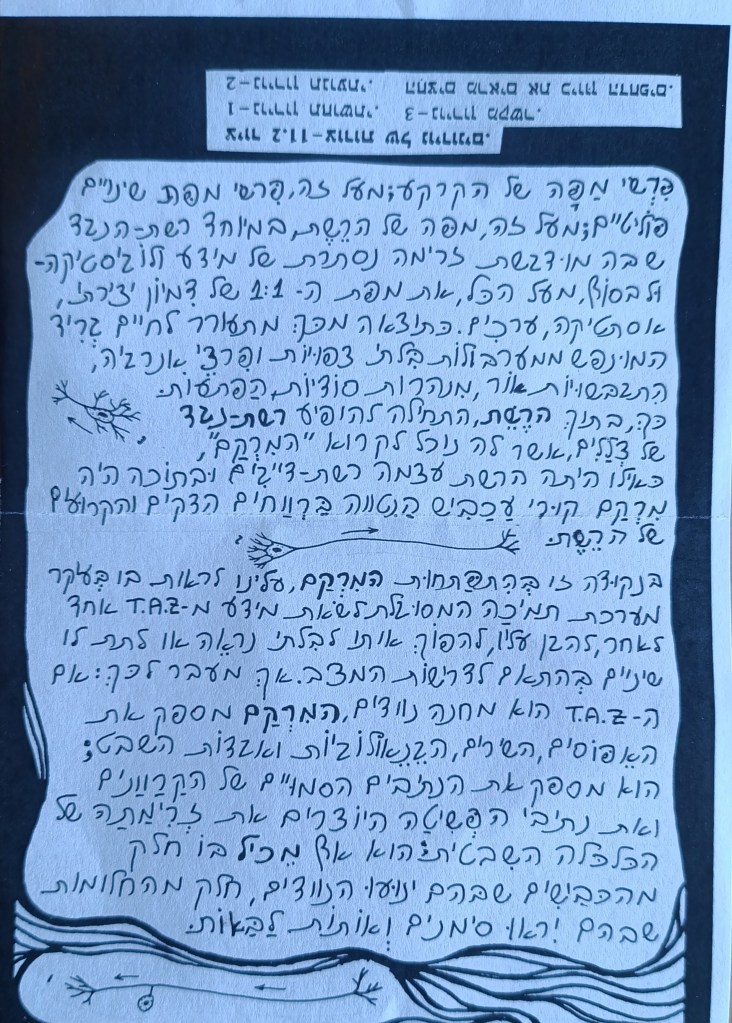 ציור 11.2-צורות של נוירונים.
1-נוירון תחושתי. 3-נוירון מקשר.
2-נוירון תנועתי. החצים מראים את כיוון הדחפים.
פְּרְשׂי מַפָּה של הקרקע; מעל זה, פָרשׂי מפת שינויים
פוליטיים; מעל זה, מפה של הרֶשֶת, במיוחד רשת-הנגד
שבה מודגשת זרימה נסתרת של מידע ולוגיסטיקה-
ולבסוף, מעל הכל, את מפת ה-1:1 של דִמיון יצירתי,
אסתטיקה, ערכים. כתוצאה מכך מתעורר לחיים גְריד
המונפש ממערבולות בִלתי צפויות ופִרצֵי אֵנרגיה,
התגבשויות אור, מִנהרות סודיות, הפתעות.
כך, בתוך הרֶשֶת, התחילה להופיע רשת-נגד
של צְלָלים, אשר לה נוכל לקרוא "המִרְקָם",
כאילו היתה הרשת עצמה רשת-דייגים ובתוכה היה
מִרְקָם קורי עַכָּביש הַנִטווה בַּרְוָוחים הדקים והקרועים
של הרֶשֶת.
בנקודה זו בְהִתפַתחות המִרְקָם, עלינו לראות בו בְעיקר
מערכת תמיכָה המסוגלת לשׂאת מידע מ-T.A.Z אחד
לאחר, להגן עליו, להפוך אותו לבִלתי נראֶה או לתת לו
שיניים בְהתאם לדרישות המצב. אך מעבר לכך: אם
ה-T.A.Z הוא מחנה נוודים, המִרְקָם מספק את
האֶפוסים, השירים, הגֶנֵאולוגיות ואגדות השבט;
הוא מספק את הנתיבים הסמויים של הקָרַוָונים
ואת נתיבי הפְּשיטָה היוצרים את זְרימָתָה של
הכלכלה השִבטית; הוא אף מֵכיל בו חלק
מהכבישים שבהם ינועו הנוודים, חלק מהחלומות
שבהם יִראו סימנים וְאותות לַבָּאות.